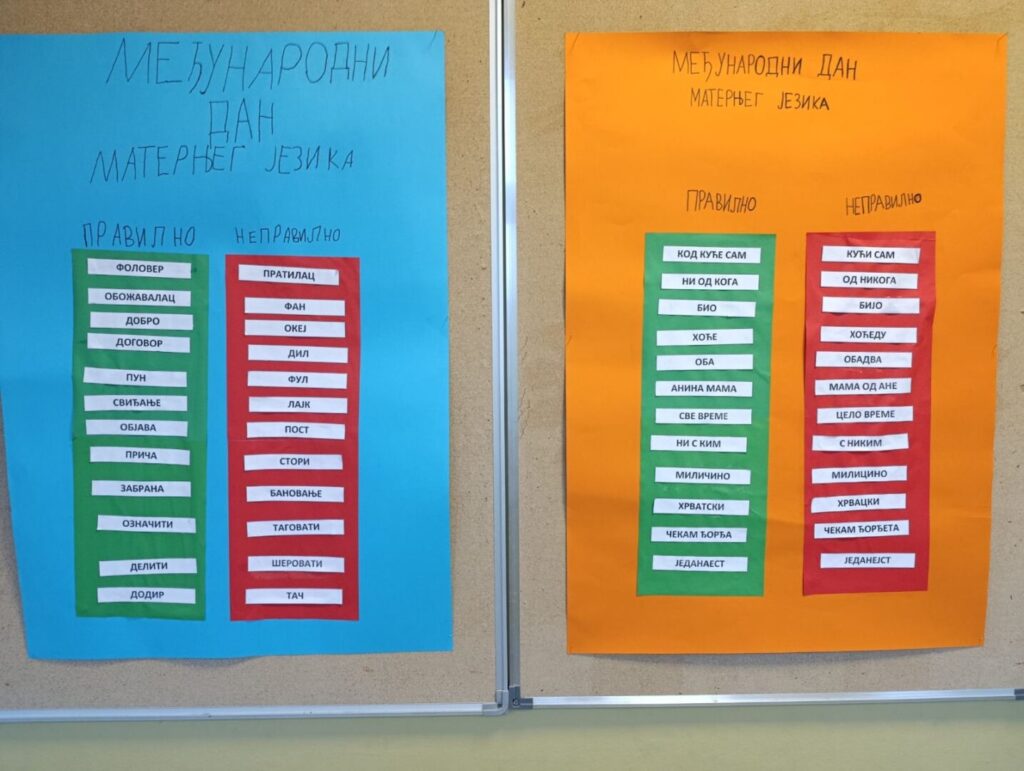 МЕЂУНАРОДНИ
ДАН
МАТЕРЊЕГ ЈЕЗИКА
ПРАВИЛНО
ФОЛОВЕР
ОБОЖАВАЛАЦ
ДОБРО
ДОГОВОР
ПУН
СВИЂАЊЕ
ОБЈАВА
ПРИЧА
ЗАБРАНА
ОЗНАЧИТИ
ДЕЛИТИ
ДОДИР
НЕПРАВИЛНО
ПРАТИЛАЦ
ФАН
ОКЕЈ
ДИЛ
ФУЛ
ЛАЈК
ПОСТ
СТОРИ
БАНОВАЊЕ
ТАГОВАТИ
ШЕРОВАТИ
ТАЧ
МЕЂУНАРОДНИ ДАН
МАТЕРЊЕГ ЈЕЗИКА
ПРАВИЛНО
КОД КУЋЕ САМ
НИ ОД КОГА
БИО
ХОЋЕ
ОБА
АНИНА МАМА
СВЕ ВРЕМЕ
НИ С КИМ
МИЛИЧИНО
ХРВАТСКИ
ЧЕКАМ ЂОРЂА
ЈЕДАНАЕСТ
НЕПРАВИЛНО
КУЋИ САМ
ОД НИКОГА
БИЈО
ХОЋЕДУ
ОБАДВА
МАМА ОД АНЕ
ЦЕЛО ВРЕМЕ
С НИКИМ
МИЛИЦИНО
ХРВАЦКИ
ЧЕКАМ ЂОРЂЕТА
ЈЕДАНЕЈСТ